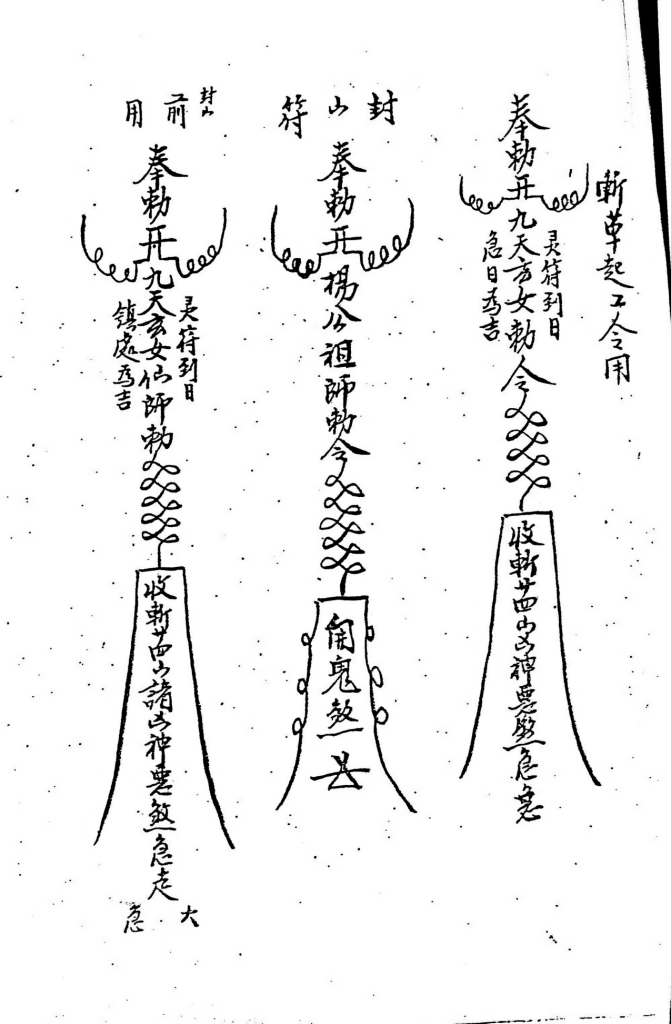 斬草起工令用
奉勅
九天玄女勅令
灵符到日
急日為吉
收斬廿四山凶神惡煞急急
封山符
奉勅
楊公祖師勅令
鬼煞
封山前用
奉勅
九天玄女仙師勅
灵符到日
鎮處為吉
收斬廿四山諸凶神惡煞急走
大急